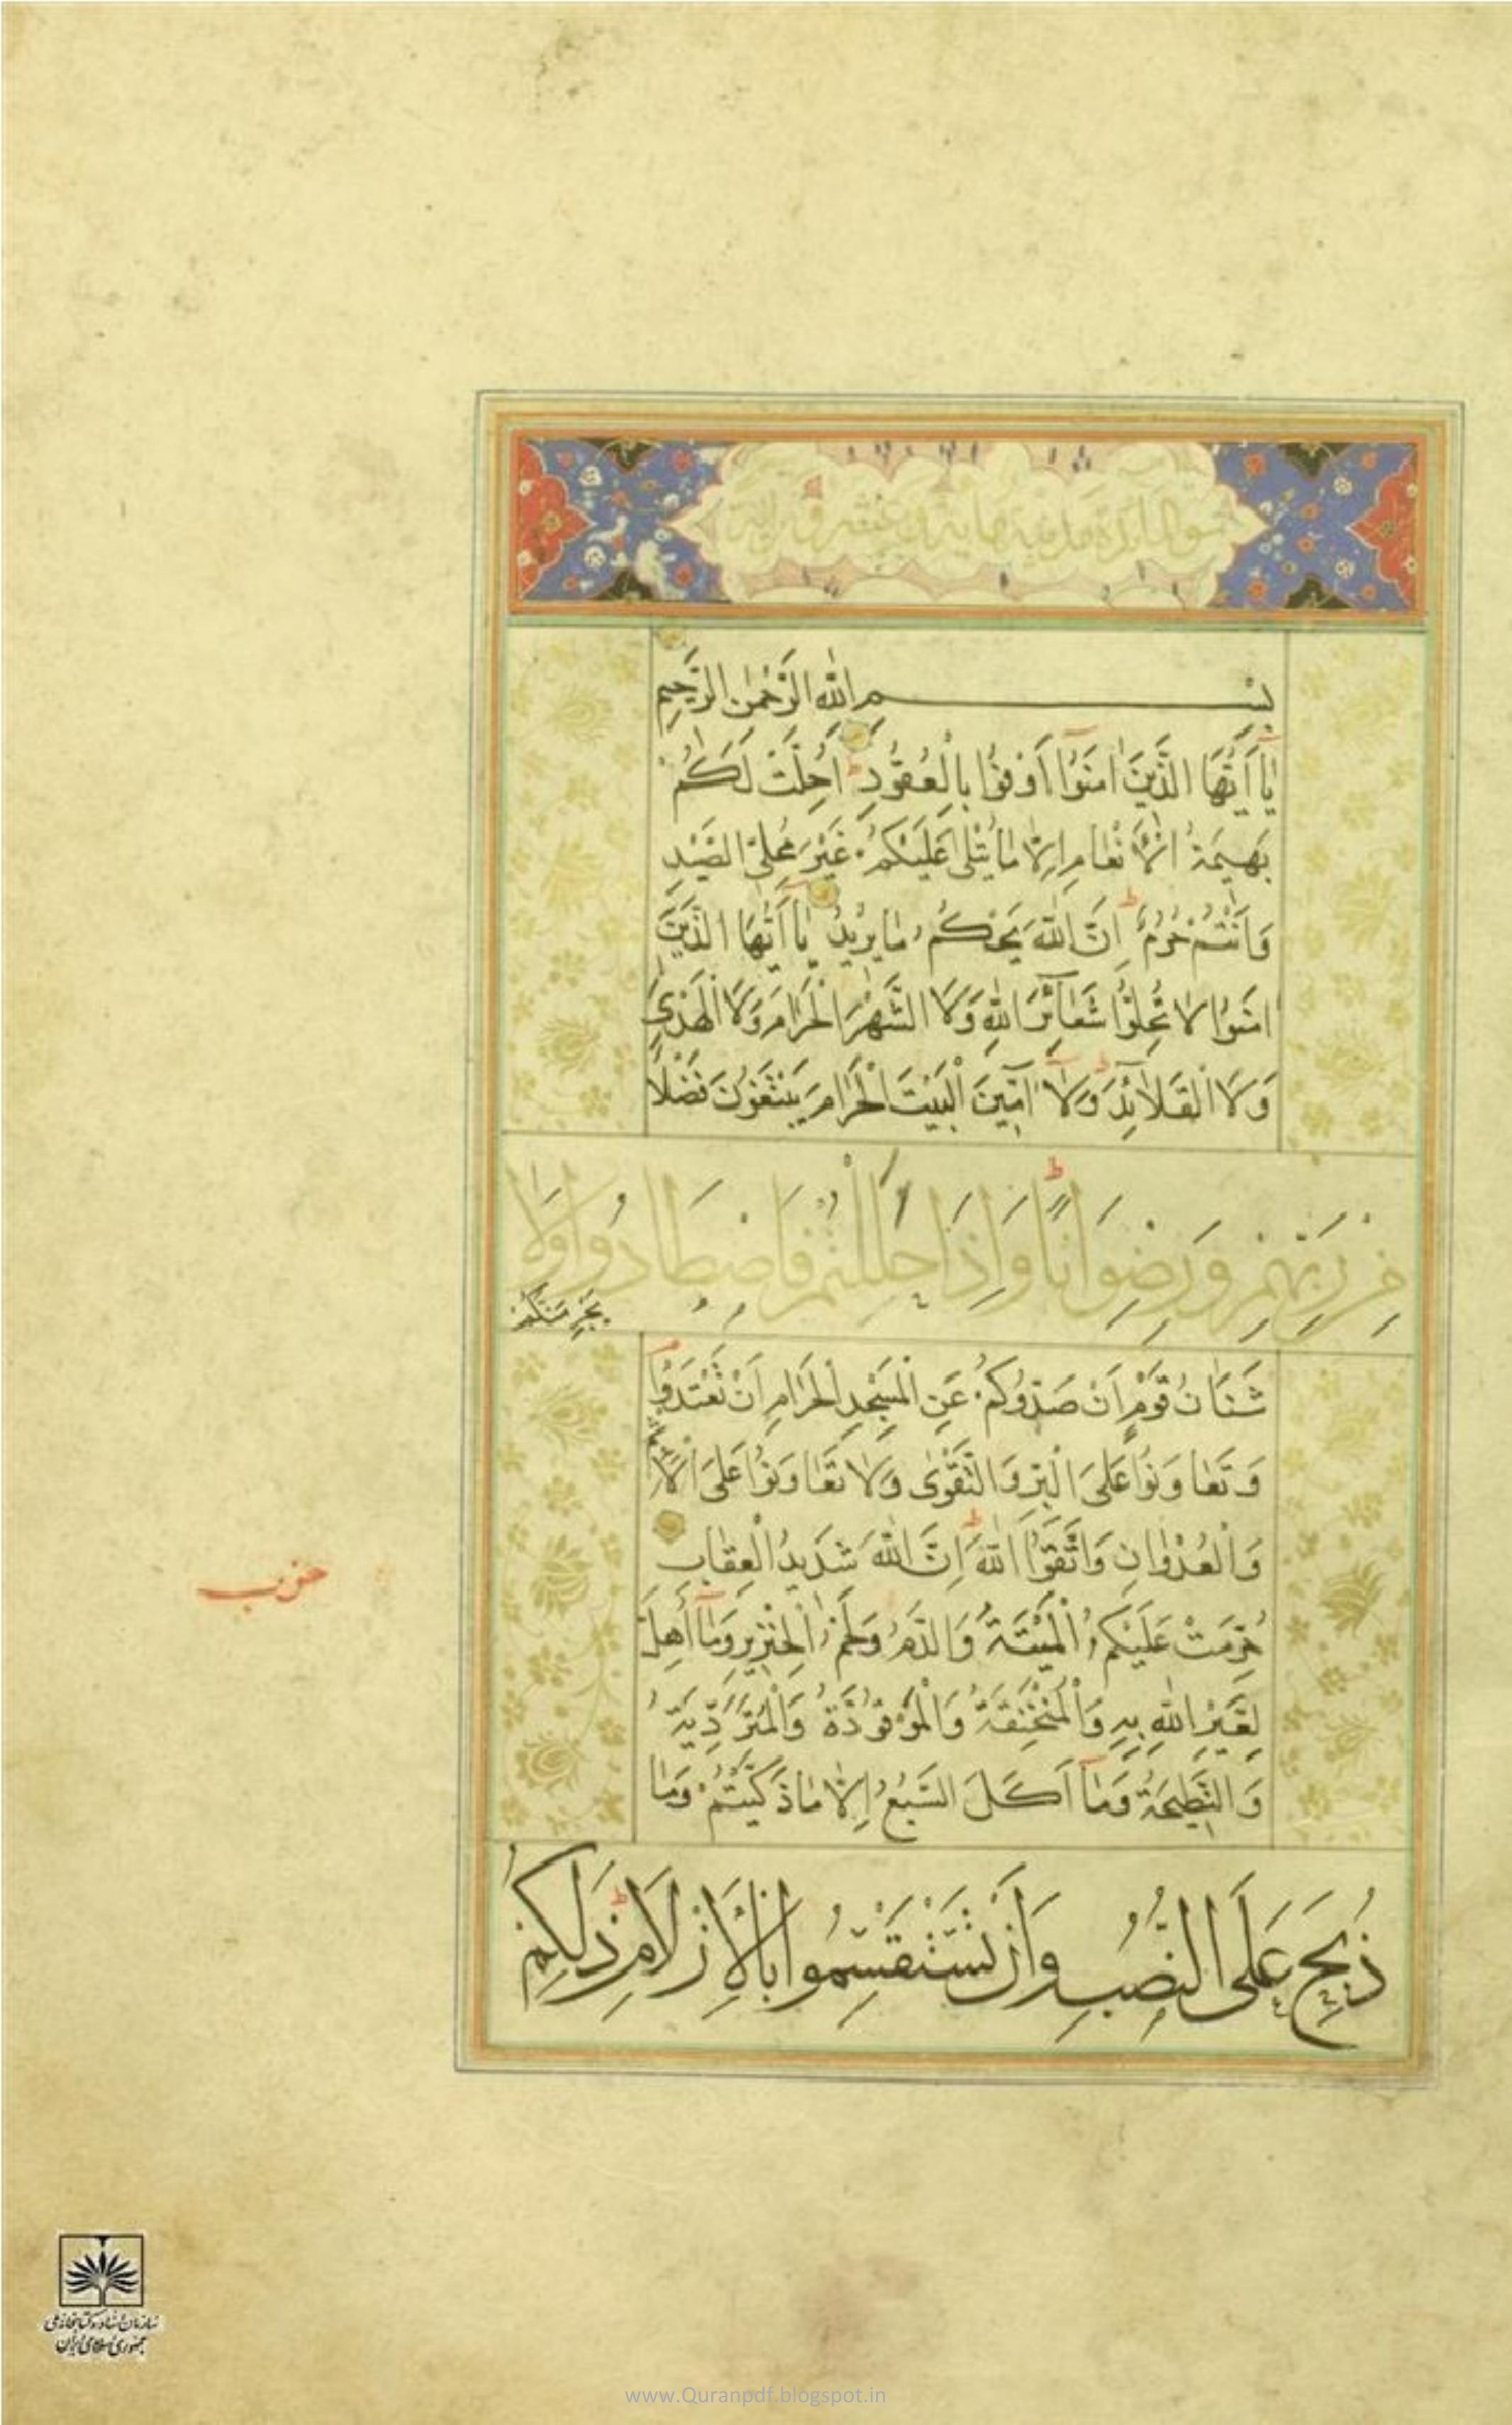 سورة المائدة مدنية مائة و
بسم الله الرحمن الرحيم
يَا أَيُّهَا الَّذِينَ اٰمَنُوۤا اَوْفُوا بِالْعُقُودِ ط اُحِلَّتْ لَكُمْ
بَهِيمَةُ الْاَنْعَامِ اِلَّا مَا يُتْلٰى عَلَيْكُمْ غَيْرَ مُحِلِّي الصَّيْدِ
وَاَنْتُمْ حُرُمٌ ط اِنَّ اللّٰهَ يَحْكُمُ مَا يُرِيدُ يَا اَيُّهَا الَّذِينَ
اٰمَنُوا لَا تُحِلُّوا شَعَآئِرَ اللّٰهِ وَلَا الشَّهْرَ الْحَرَامَ وَلَا الْهَدْيَ
وَلَا الْقَلَائِدَ وَلَا اٰمِّينَ الْبَيْتَ الْحَرَامَ يَبْتَغُونَ فَضْلًا
مِنْ رَبِّهِمْ وَرِضْوَانًا ط وَاِذَا حَلَلْتُمْ فَاصْطَادُوا وَلَا
يَجْرِمَنَّكُمْ
شَنَاٰنُ قَوْمٍ اَنْ صَدُّوكُمْ عَنِ الْمَسْجِدِ الْحَرَامِ اَنْ تَعْتَدُوا م
وَتَعَاوَنُوا عَلَى الْبِرِّ وَالتَّقْوٰى وَلَا تَعَاوَنُوا عَلَى الْاِثْمِ
وَالْعُدْوَانِ وَاتَّقُوا اللّٰهَ ط اِنَّ اللّٰهَ شَدِيدُ الْعِقَابِ
حُرِّمَتْ عَلَيْكُمُ الْمَيْتَةُ وَالدَّمُ وَلَحْمُ الْخِنْزِيرِ وَمَاۤ اُهِلَّ
لِغَيْرِ اللّٰهِ بِهِ وَالْمُنْخَنِقَةُ وَالْمَوْقُوذَةُ وَالْمُتَرَدِّيَةُ
وَالنَّطِيحَةُ وَمَاۤ اَكَلَ السَّبُعُ اِلَّا مَا ذَكَّيْتُمْ وَمَا
ذُبِحَ عَلَى النُّصُبِ وَاَنْ تَسْتَقْسِمُوا بِالْاَزْلَامِ ط ذٰلِكُمْ
حزب
سازمان اسناد و کتابخانه ملی
جمهوری اسلامی ایران
www.Quranpdf.blogspot.in